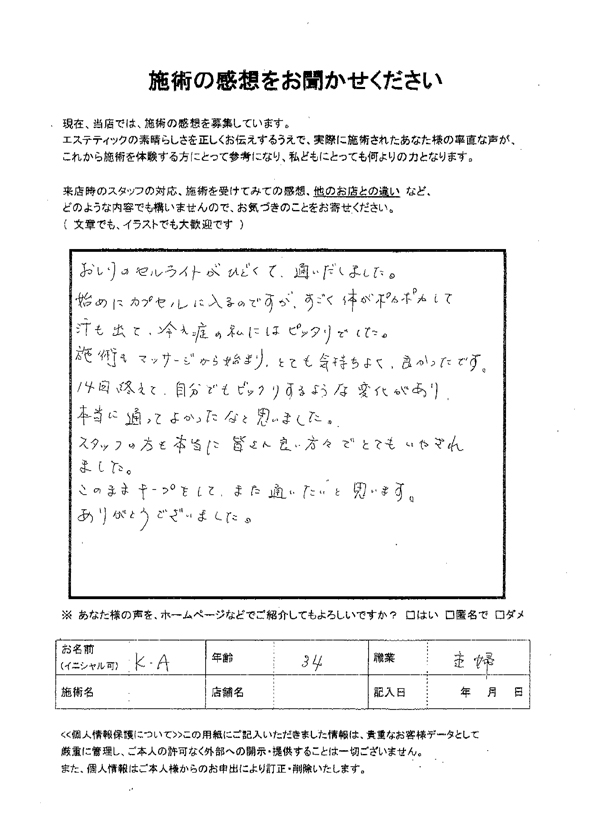 施術の感想をお聞かせください
現在、当店では、施術の感想を募集しています。
エステティックの素晴らしさを正しくお伝えするうえで、実際に施術されたあなた様の率直な声が、
これから施術を体験する方にとって参考になり、私どもにとっても何よりの力となります。
来店時のスタッフの対応、施術を受けてみての感想、他のお店との違い など、
どのような内容でも構いませんので、お気づきのことをお寄せください。
( 文章でも、イラストでも大歓迎です )
おしりのセルライトがひどくて、通いだしました。
始めにカプセルに入るのですが、すごく体がポカポカして
汗も出て、冷え症の私にはピッタリでした。
施術もマッサージから始まり、とても気持ちよく、良かったです。
14回終えて、自分でもビックリするような変化があり、
本当に通ってよかったなと思いました。
スタッフの方も本当に皆さん良い方々でとてもいやされ
ました。
このままキープをして、また通いたいと思います。
ありがとうございました。
※ あなた様の声を、ホームページなどでご紹介してもよろしいですか? □はい □匿名で □ダメ
お名前 (イニシャル可) K・A 年齢 34 職業 主婦
施術名 店舗名 記入日 年 月 日
<<個人情報保護について>>この用紙にご記入いただきました情報は、貴重なお客様データとして
厳重に管理し、ご本人の許可なく外部への開示・提供することは一切ございません。
また、個人情報はご本人様からのお申出により訂正・削除いたします。